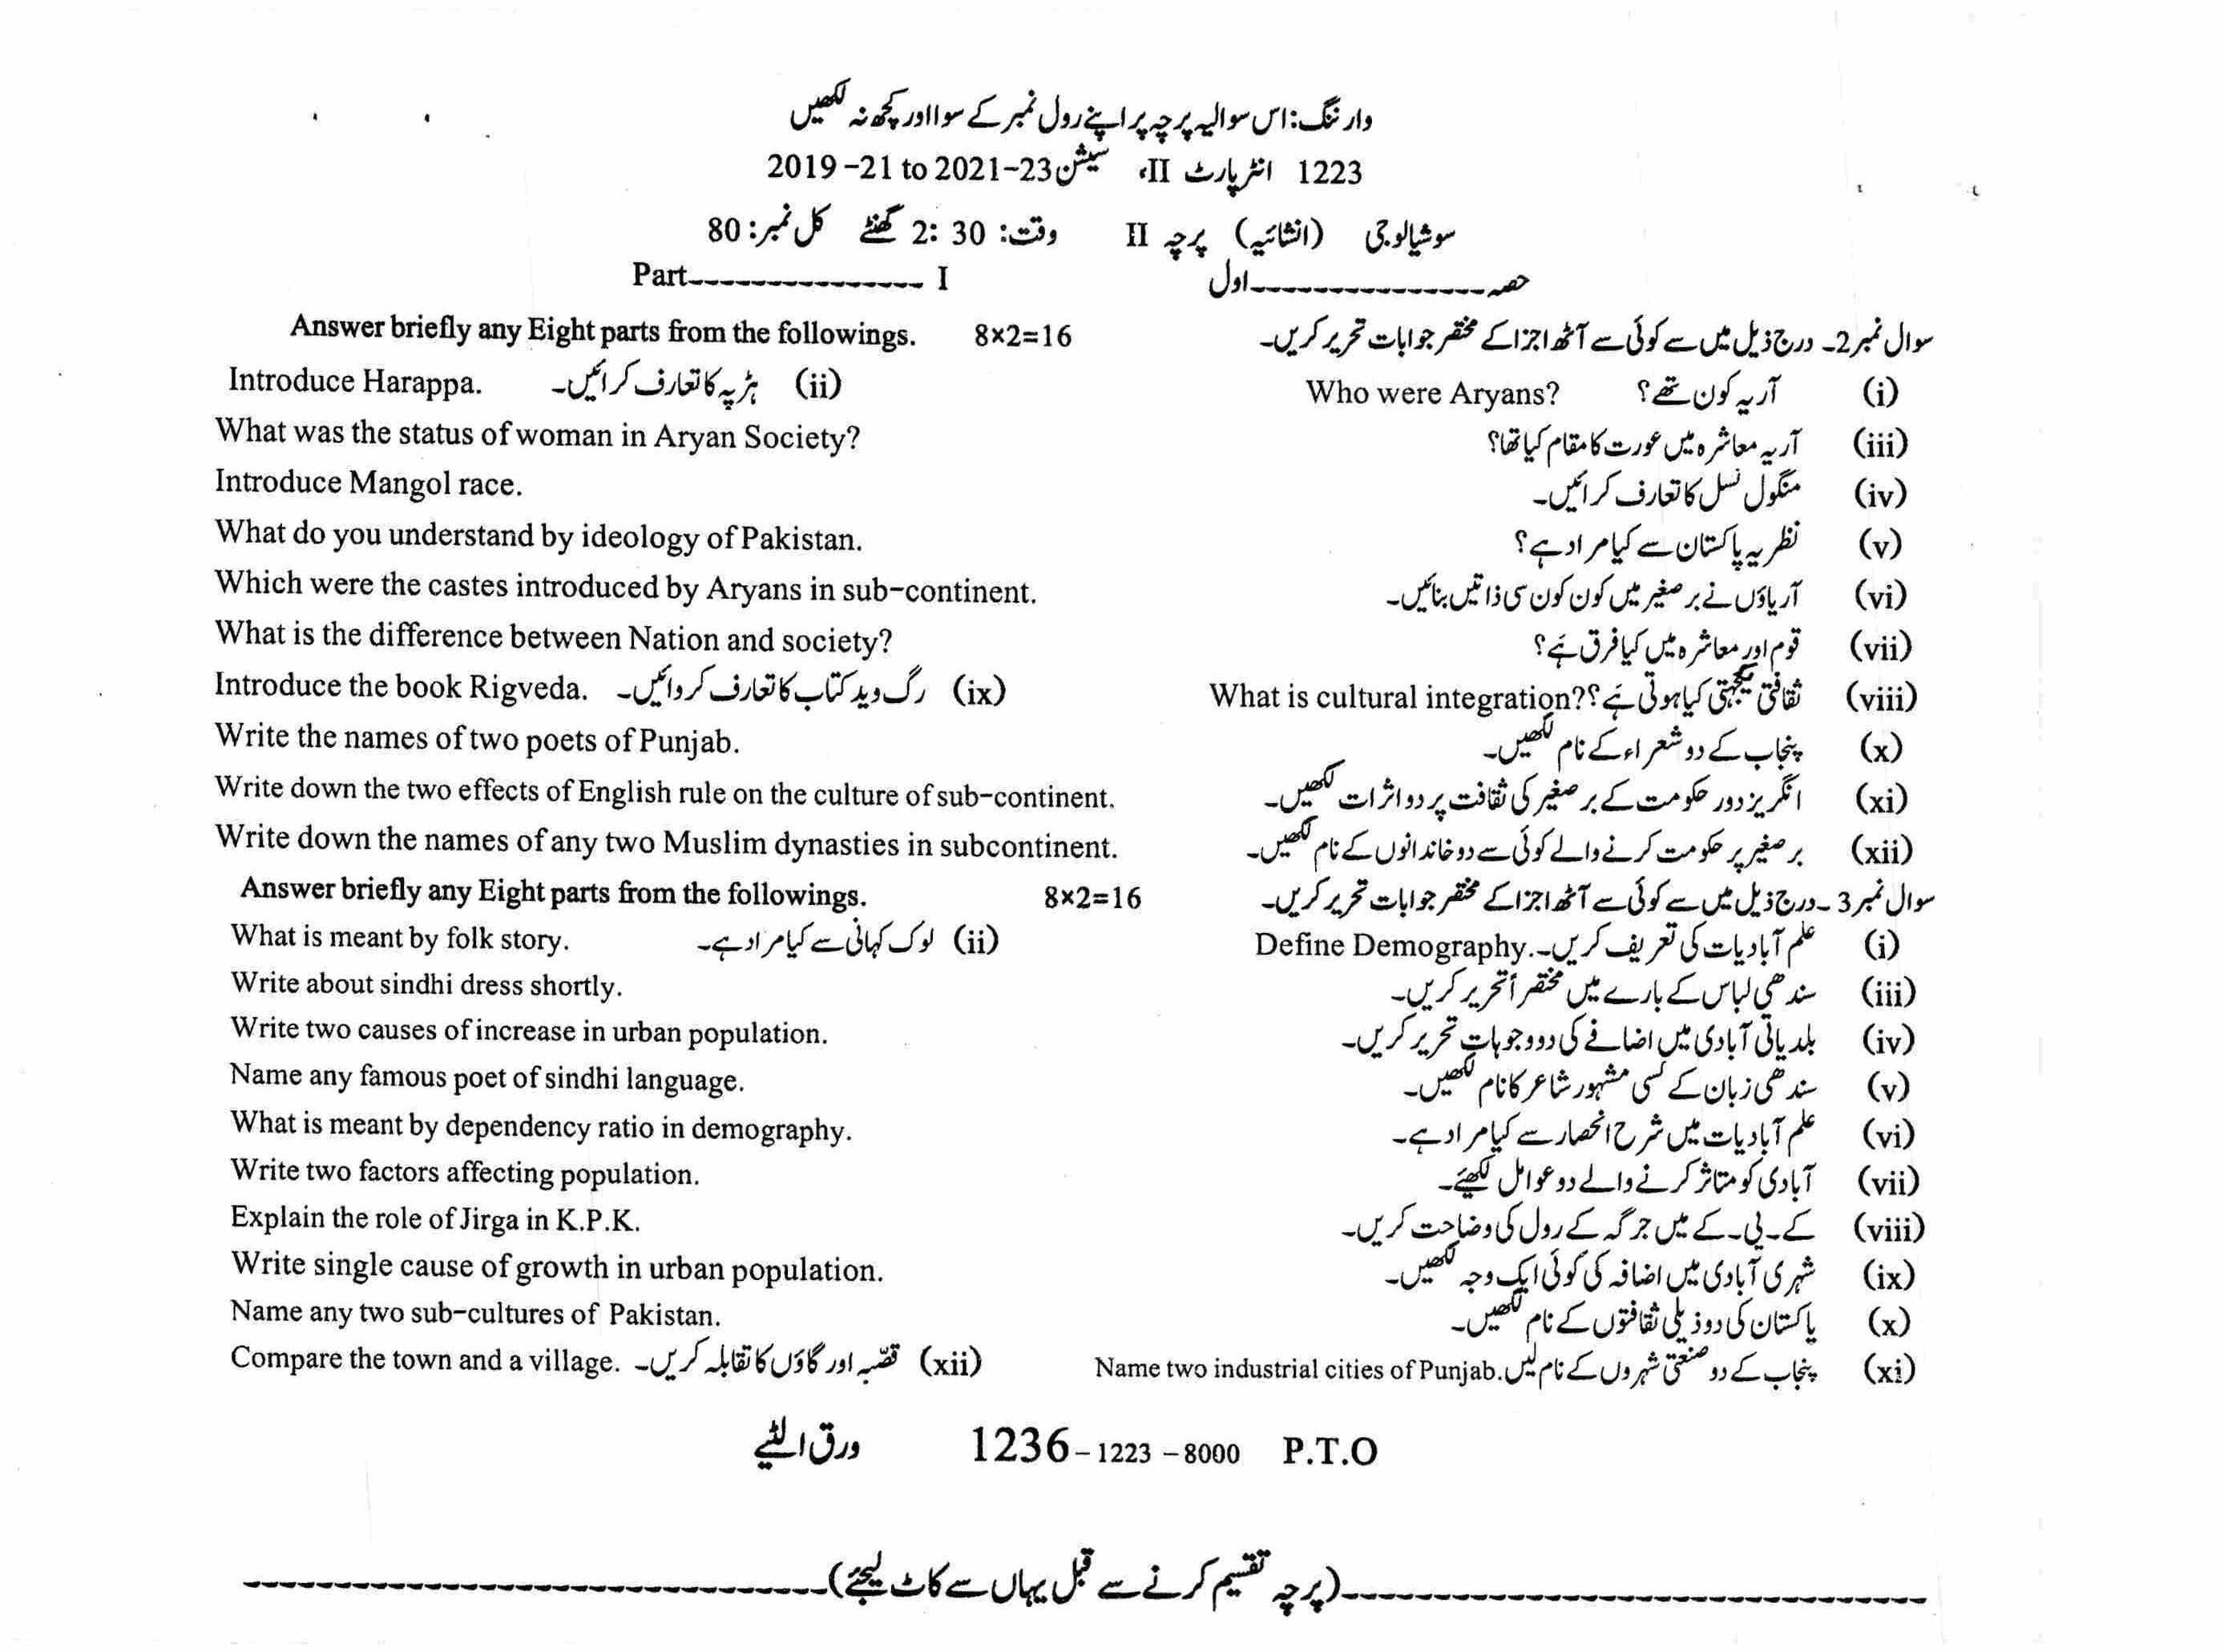 وارننگ: اس سوالیہ پرچہ پر اپنے رول نمبر کے سوا اور کچھ نہ لکھیں
1223 انٹر پارٹ II، سیشن 2019 -21 to 2021-23
سوشیالوجی (انشائیہ) پرچہ II وقت: 30 :2 گھنٹے کل نمبر: 80
حصہ----------------اول Part----------------- I
سوال نمبر 2۔ درج ذیل میں سے کوئی سے آٹھ اجزا کے مختصر جوابات تحریر کریں۔ 8×2=16 Answer briefly any Eight parts from the followings.
(i) آریہ کون تھے؟ Who were Aryans? (ii) ہڑپہ کا تعارف کرائیں۔ Introduce Harappa.
(iii) آریہ معاشرہ میں عورت کا مقام کیا تھا؟ What was the status of woman in Aryan Society?
(iv) منگول نسل کا تعارف کرائیں۔ Introduce Mangol race.
(v) نظریہ پاکستان سے کیا مراد ہے؟ What do you understand by ideology of Pakistan.
(vi) آریاؤں نے برصغیر میں کون کون سی ذاتیں بنائیں۔ Which were the castes introduced by Aryans in sub-continent.
(vii) قوم اور معاشرہ میں کیا فرق ہے؟ What is the difference between Nation and society?
(viii) ثقافتی یکجہتی کیا ہوتی ہے؟ What is cultural integration? (ix) رگ وید کتاب کا تعارف کروائیں۔ Introduce the book Rigveda.
(x) پنجاب کے دو شعراء کے نام لکھیں۔ Write the names of two poets of Punjab.
(xi) انگریز دور حکومت کے برصغیر کی ثقافت پر دو اثرات لکھیں۔ Write down the two effects of English rule on the culture of sub-continent.
(xii) برصغیر پر حکومت کرنے والے کوئی سے دو خاندانوں کے نام لکھیں۔ Write down the names of any two Muslim dynasties in subcontinent.
سوال نمبر 3 ۔درج ذیل میں سے کوئی سے آٹھ اجزا کے مختصر جوابات تحریر کریں۔ 8×2=16 Answer briefly any Eight parts from the followings.
(i) علم آبادیات کی تعریف کریں۔ Define Demography. (ii) لوک کہانی سے کیا مراد ہے۔ What is meant by folk story.
(iii) سندھی لباس کے بارے میں مختصراً تحریر کریں۔ Write about sindhi dress shortly.
(iv) بلدیاتی آبادی میں اضافے کی دو وجوہات تحریر کریں۔ Write two causes of increase in urban population.
(v) سندھی زبان کے کسی مشہور شاعر کا نام لکھیں۔ Name any famous poet of sindhi language.
(vi) علم آبادیات میں شرح انحصار سے کیا مراد ہے۔ What is meant by dependency ratio in demography.
(vii) آبادی کو متاثر کرنے والے دو عوامل لکھیئے۔ Write two factors affecting population.
(viii) کے۔پی۔کے میں جرگہ کے رول کی وضاحت کریں۔ Explain the role of Jirga in K.P.K.
(ix) شہری آبادی میں اضافہ کی کوئی ایک وجہ لکھیں۔ Write single cause of growth in urban population.
(x) پاکستان کی دو ذیلی ثقافتوں کے نام لکھیں۔ Name any two sub-cultures of Pakistan.
(xi) پنجاب کے دو صنعتی شہروں کے نام لیں Name two industrial cities of Punjab. (xii) قصبہ اور گاؤں کا تقابلہ کریں۔ Compare the town and a village.
ورق الٹیے 1236- 1223 - 8000 P.T.O
--------------------------------(پرچہ تقسیم کرنے سے قبل یہاں سے کاٹ لیجئے)--------------------------------